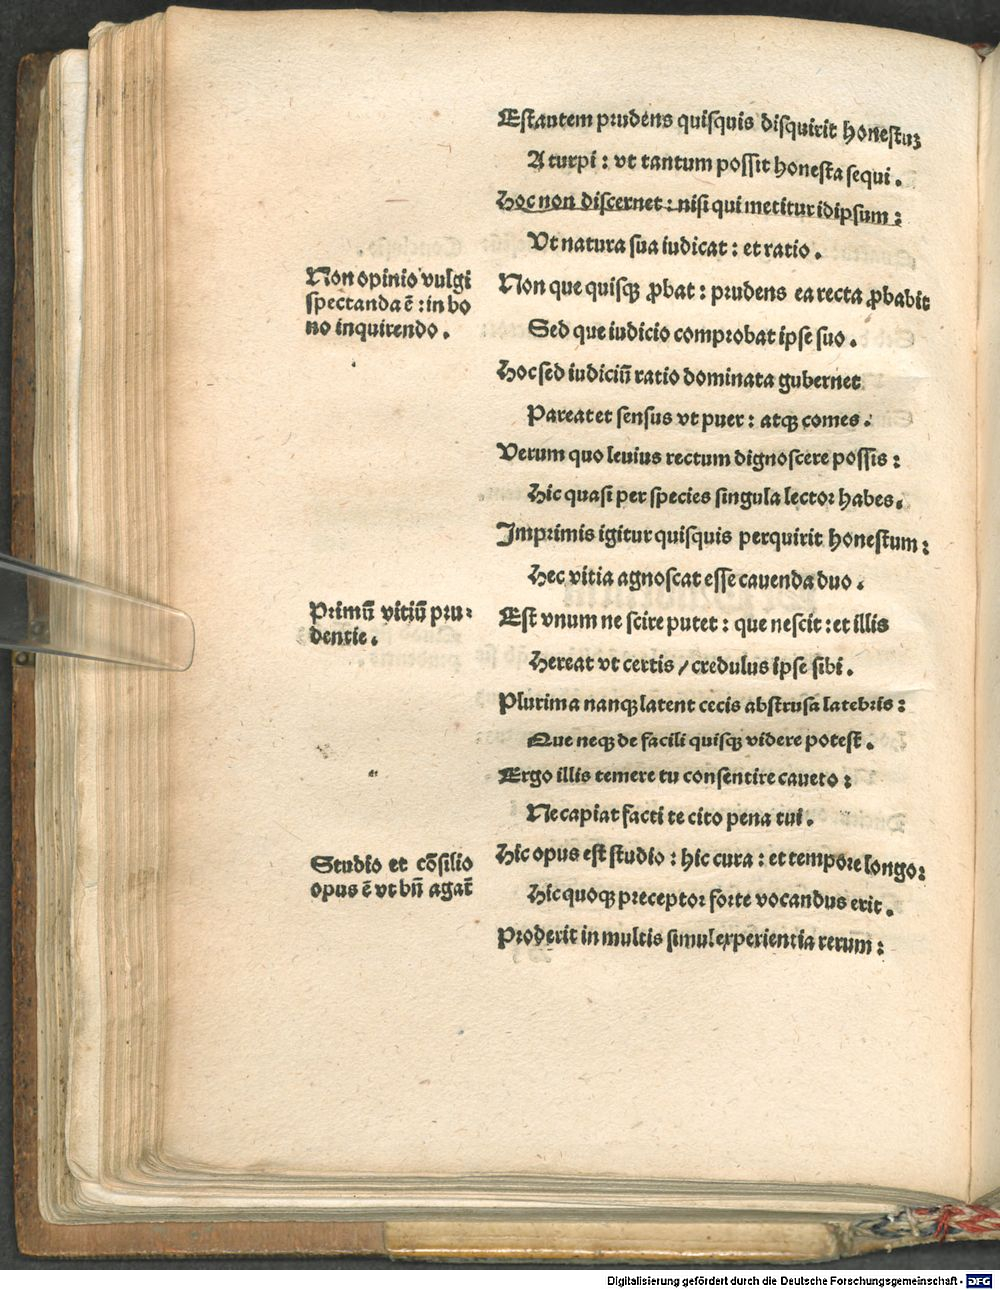 Est autem prudens quisquis disquirit honestuꝫ
A turpi: vt tantum possit honesta sequi.
Hoc non discernet: nisi qui metitur idipsum:
Vt natura sua iudicat: et ratio.
Non opinio vulgi
spectanda ē: in bo
no inquirendo.
Non que quisqꝫ ꝓbat: prudens ea recta ꝓbabit
Sed que iudicio comprobat ipse suo.
Hoc sed iudiciū ratio dominata gubernet
Pareat et sensus vt puer: atqꝫ comes.
Verum quo leuius rectum dignoscere possis:
Hic quasi per species singula lector habes.
Imprimis igitur quisquis perquirit honestum:
Hec vitia agnoscat esse cauenda duo.
Primū vitiū pru-
dentie.
Est vnum ne scire putet: que nescit: et illis
Hereat vt certis / credulus ipse sibi.
Plurima nanqꝫ latent cecis abstrusa latebris:
Que neqꝫ de facili quisqꝫ videre potest.
Ergo illis temere tu consentire caueto:
Ne capiat facti te cito pena tui.
Studio et cōsilio
opus ē vt bn̄ agat̄
Hic opus est studio: hic cura: et tempore longo:
Hic quoqꝫ preceptor forte vocandus erit.
Proderit in multis simul experientia rerum:
Digitalisierung gefördert durch die Deutsche Forschungsgemeinschaft - DFG